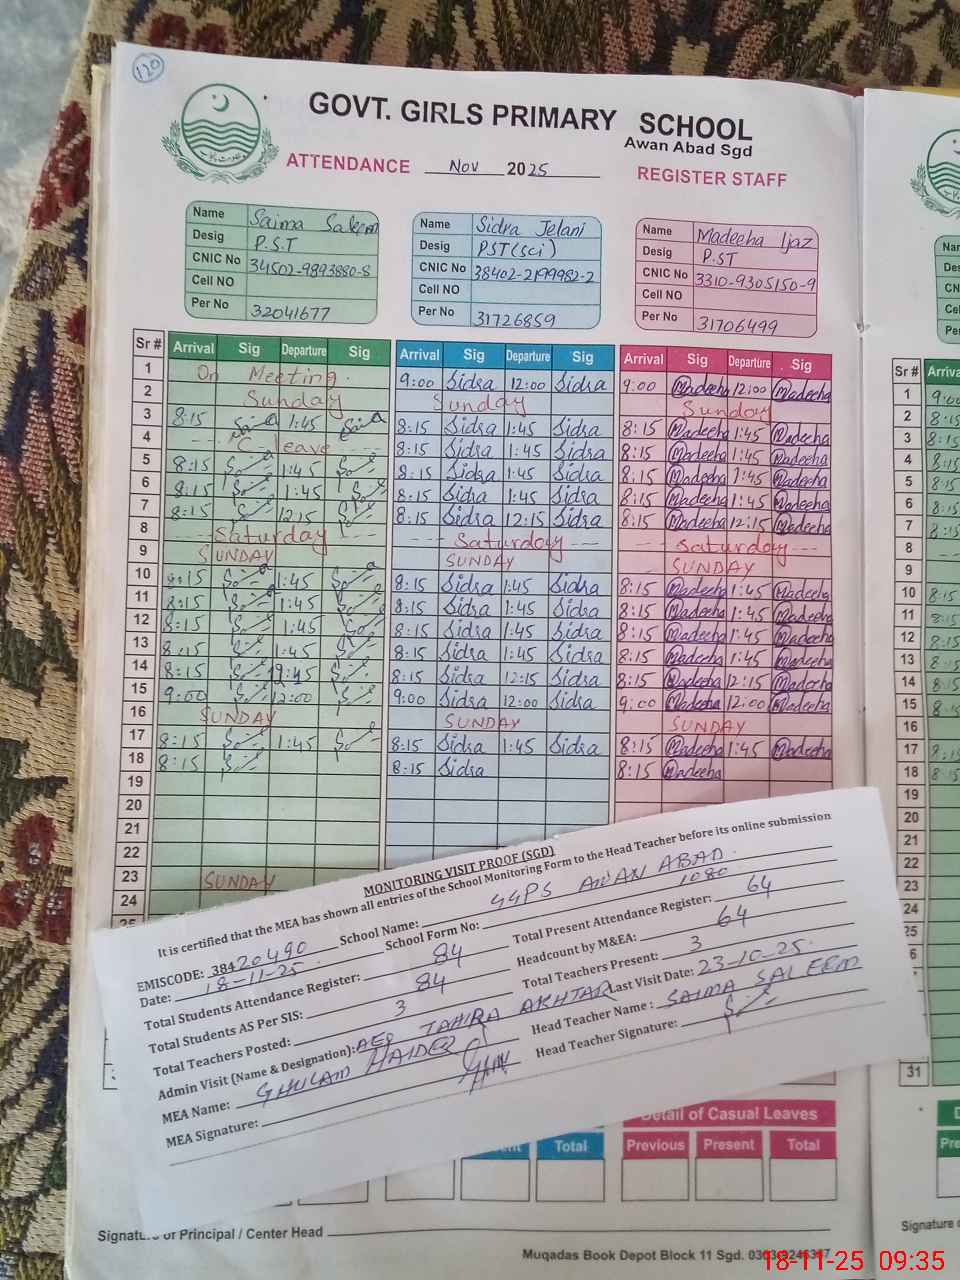 120
GOVT. GIRLS PRIMARY SCHOOL
Awan Abad Sgd
ATTENDANCE Nov 2025 REGISTER STAFF
Name Saima Saleem
Desig P.S.T
CNIC No 34502-9893880-8
Cell NO
Per No 32041677
Name Sidra Jelani
Desig PST(sci)
CNIC No 38402-2199982-2
Cell NO
Per No 31726859
Name Madeeha Ijaz
Desig P.ST
CNIC No 3310-9305150-9
Cell NO
Per No 31706499
Sr # Arrival Sig Departure Sig Arrival Sig Departure Sig Arrival Sig Departure Sig
1 On Meeting. 9:00 Sidra 12:00 Sidra 9:00 Madeeha 12:00 Madeeha
2 Sunday Sunday Sunday
3 8:15 1:45 8:15 Sidra 1:45 Sidra 8:15 Madeeha 1:45 Madeeha
4 C-leave 8:15 Sidra 1:45 Sidra 8:15 Madeeha 1:45 Madeeha
5 8:15 1:45 8:15 Sidra 1:45 Sidra 8:15 Madeeha 1:45 Madeeha
6 8:15 1:45 8:15 Sidra 1:45 Sidra 8:15 Madeeha 1:45 Madeeha
7 8:15 12:15 8:15 Sidra 12:15 Sidra 8:15 Madeeha 12:15 Madeeha
8 Saturday Saturday Saturday
9 SUNDAY SUNDAY SUNDAY
10 8:15 1:45 8:15 Sidra 1:45 Sidra 8:15 Madeeha 1:45 Madeeha
11 8:15 1:45 8:15 Sidra 1:45 Sidra 8:15 Madeeha 1:45 Madeeha
12 8:15 1:45 8:15 Sidra 1:45 Sidra 8:15 Madeeha 1:45 Madeeha
13 8:15 1:45 8:15 Sidra 1:45 Sidra 8:15 Madeeha 1:45 Madeeha
14 8:15 8:15 Sidra 12:15 Sidra 8:15 Madeeha 12:15 Madeeha
15 9:00 12:00 9:00 Sidra 12:00 Sidra 9:00 Madeeha 12:00 Madeeha
16 SUNDAY SUNDAY SUNDAY
17 8:15 1:45 8:15 Sidra 1:45 Sidra 8:15 Madeeha 1:45 Madeeha
18 8:15 8:15 Sidra 8:15 Madeeha
19
20
21
22
23 SUNDAY
24
MONITORING VISIT PROOF (SGD)
It is certified that the MEA has shown all entries of the School Monitoring Form to the Head Teacher before its online submission
EMISCODE: 38420490 School Name: GGPS AWAN ABAD.
Date: 18-11-25 School Form No: 1080
Total Students Attendance Register: 84 Total Present Attendance Register: 64
Total Students AS Per SIS: 84 Headcount by M&EA: 64
Total Teachers Posted: 3 Total Teachers Present: 3
Admin Visit (Name & Designation): AEO TAHIRA AKHTAR Last Visit Date: 23-10-25.
MEA Name: GHULAM HAIDER Head Teacher Name : SAIMA SALEEM
MEA Signature: Head Teacher Signature:
Detail of Casual Leaves
Total Previous Present Total
Signature of Principal / Center Head
Muqadas Book Depot Block 11 Sgd.
Sr # Arriva
1 9:00
2 8:15
3 8:15
4 8:15
5 8:15
6 8:15
7 8:15
8
9
10 8:15
11 8:15
12 8:15
13 8:15
14 8:15
15 8:15
16
17 8:15
18 8:15
19
20
21
22
23
24
25
31
Signature o
18-11-25 09:35